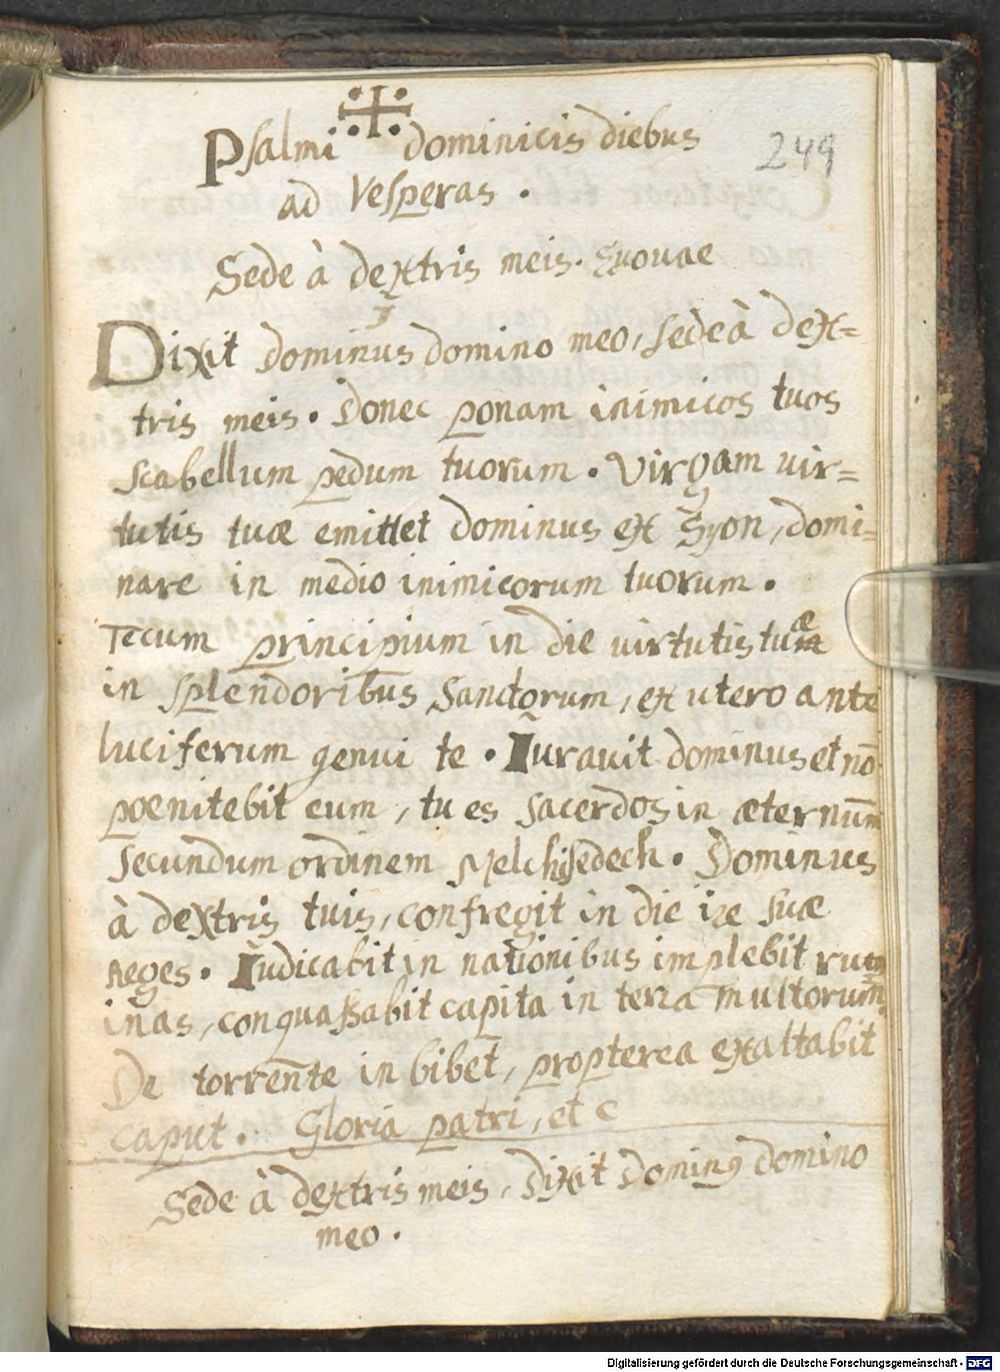 Psalmi dominicis diebus
249
ad Vesperas .
Sede à dextris meis. Euouae
Dixit dominus domino meo, sede à dex=
tris meis. Donec ponam inimicos tuos
scabellum pedum tuorum. Virgam uir=
tutis tuæ emittet dominus ex Syon, domi=
nare in medio inimicorum tuorum.
Tecum principium in die uirtutis tuæ
in splendoribus Sanctorum, ex utero ante
luciferum genui te. Iurauit dominus et nō
poenitebit eum, tu es sacerdos in æternum̄
secundum ordinem Melchisedech. Dominus
à dextris tuis, confregit in die iræ suæ
Reges. Iudicabit in nationibus implebit ru
inas, conquaßabit capita in terra multorum.
De torrente in bibet, propterea exaltabit
caput. Gloria patri, et c
Sede à dextris meis, Dixit Dominꝰ domino
meo.
Digitalisierung gefördert durch die Deutsche Forschungsgemeinschaft - DFG